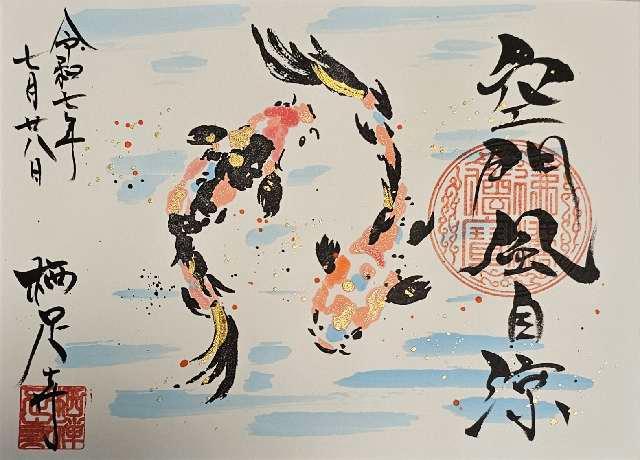 空門風自涼
令和七年
七月廿八日
栖足寺